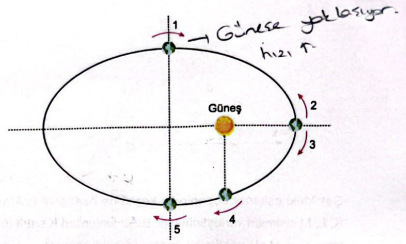 1
→ Güneşe yaklaşıyor.
hızı ↑
Güneş
2
3
4
5